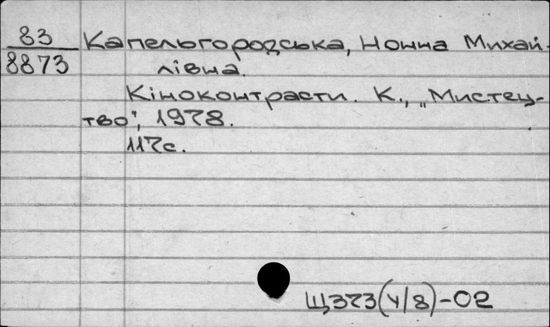 83
8873
Капельгородська, Нонна Михай-
лівна.
Кіноконтрасти. К., „Мистец-
тво", 1978.
117с.
Щ373(4/8)-02